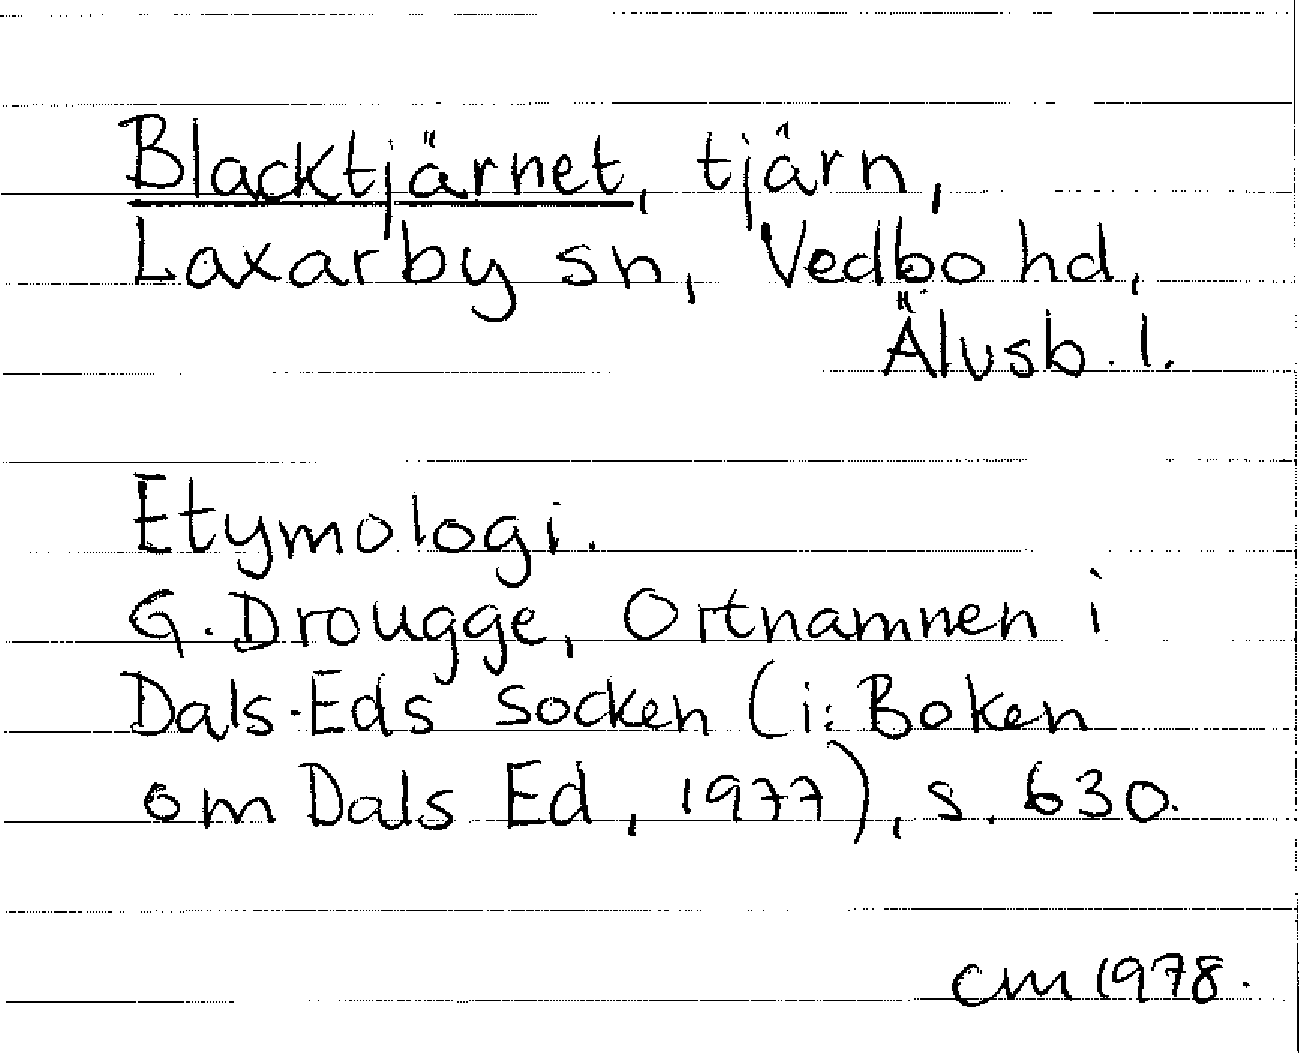 Blacktjärnet, tjärn,
Laxarby sn, Vedbo hd,
Älvsb. l.
Etymologi.
G. Drougge, Ortnamnen i
Dals-Eds socken (i: Boken
om Dals Ed, 1977), s. 630.
CM 1978.